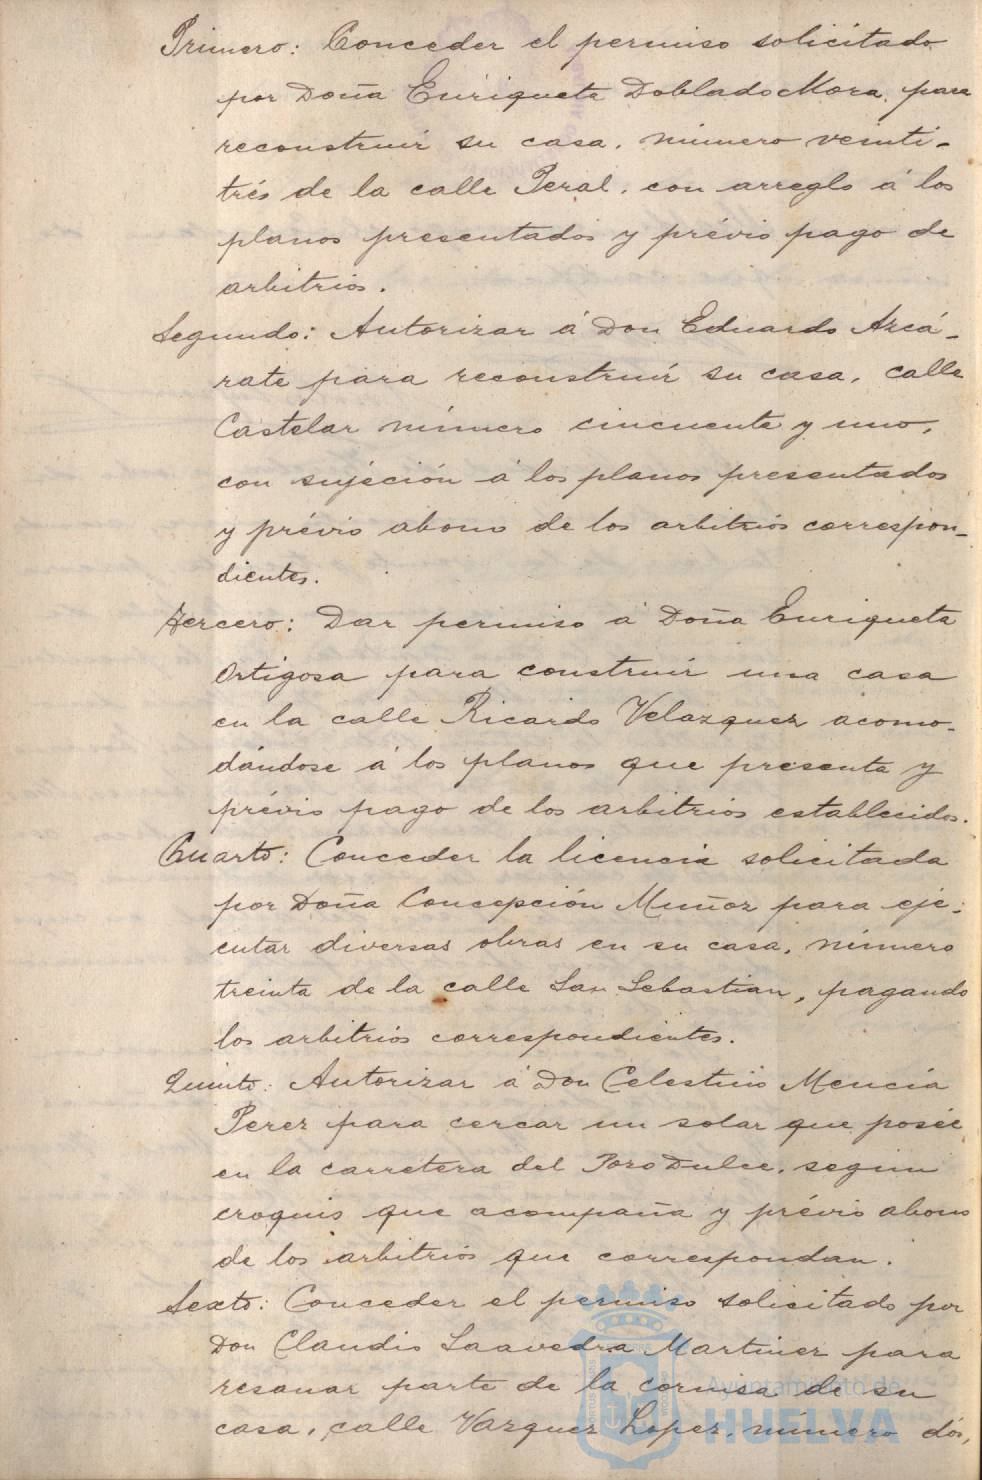 Primero: Conceder el permiso solicitado
por Doña Enriqueta Doblado Mora, para
reconstruir su casa, número veinti-
trés de la calle Peral, con arreglo á los
planos presentados y prévio pago de
arbitrios.
Segundo: Autorizar á Don Eduardo Azcá-
rate para reconstruir su casa, calle
Castelar número cincuenta y uno,
con sujeción á los planos presentados
y prévio abono de los arbitrios correspon-
dientes.
Tercero: Dar permiso á Doña Enriqueta
Ortigosa para construir una casa
en la calle Ricardo Velazquez acomo-
dándose á los planos que presenta y
prévio pago de los arbitrios establecidos.
Cuarto: Conceder la licencia solicitada
por Doña Concepción Muñoz para eje-
cutar diversas obras en su casa, número
treinta de la calle San Sebastian, pagando
los arbitrios correspondientes.
Quinto: Autorizar á Don Celestino Mencía
Perez para cercar un solar que posée
en la carretera del Pozo Dulce, segun
croquis que acompaña y prévio abono
de los arbitrios que correspondan.
Sexto: Conceder el permiso solicitado por
Don Claudio Saavedra Martinez para
resanar parte de la cornisa de su
casa, calle Vazquez Lopez, número dós,
Ayuntamiento de
HUELVA